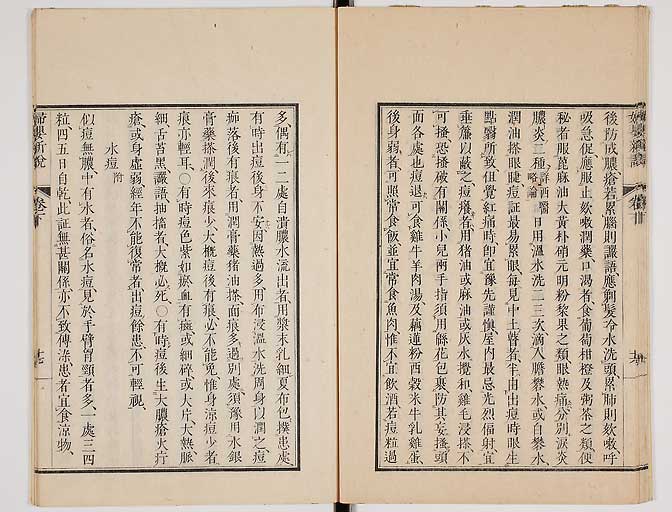 後防成膿瘡若累腦則譫語應剃髮令水洗頭累肺則欬嗽呼
吸急促應服止欬嗽潤藥口渴者食葡萄柑橙及粥茶之類便
秘者服萆麻油大黃朴硝元明粉黎果之類眼熱痛分別淚炎
膿炎二種詳西醫略論日用溫水洗二三次滴入膽礬水或白礬水
潤油搽眼睫痘証最易累眼每見中土瞽者半由出痘時眼生
點翳所致但覺紅痛時卽宜豫先謹愼屋內最忌光烈倕射宜
垂簾以蔽之痘癢者用猪油或麻油或灰水攪和雞毛浸搽不
可搔恐搔破有關係小兒兩手指須用綿花包裹防其妄搔頭
面各處也痘退可食雞牛羊肉湯及藕蓮粉西穀米牛乳雞蛋
後身弱者可照常食飯並宜常食魚肉惟不宜飲酒若痘粒過
婦嬰新說
多偶有一二處自潰膿水流出者用漿末乳細夏布包撲患處
有時出痘後身不安因熱過多用布浸溫水洗周身以潤之痘
痂落後有痕者用潤膏藥猪油搽面痕多過別處須豫用水銀
膏藥搽潤後來痕少大槪痘後有痕必不能免惟身涼痘少者
痕亦輕耳〇有時痘色紫如瘀血有斑或細碎或大片大熱脈
細舌苔黑譫語抽搐者大槪必死〇有時痘後生大膿瘡火疔
瘡或身虛弱經年不能復常者出痘餘患不可輕視
水痘附
似痘無膿中有水者俗名水痘見於手臂胷頸者多一處三四
粒四五日自乾此証無甚關係亦不致傳染患者宜食涼物
婦嬰新說